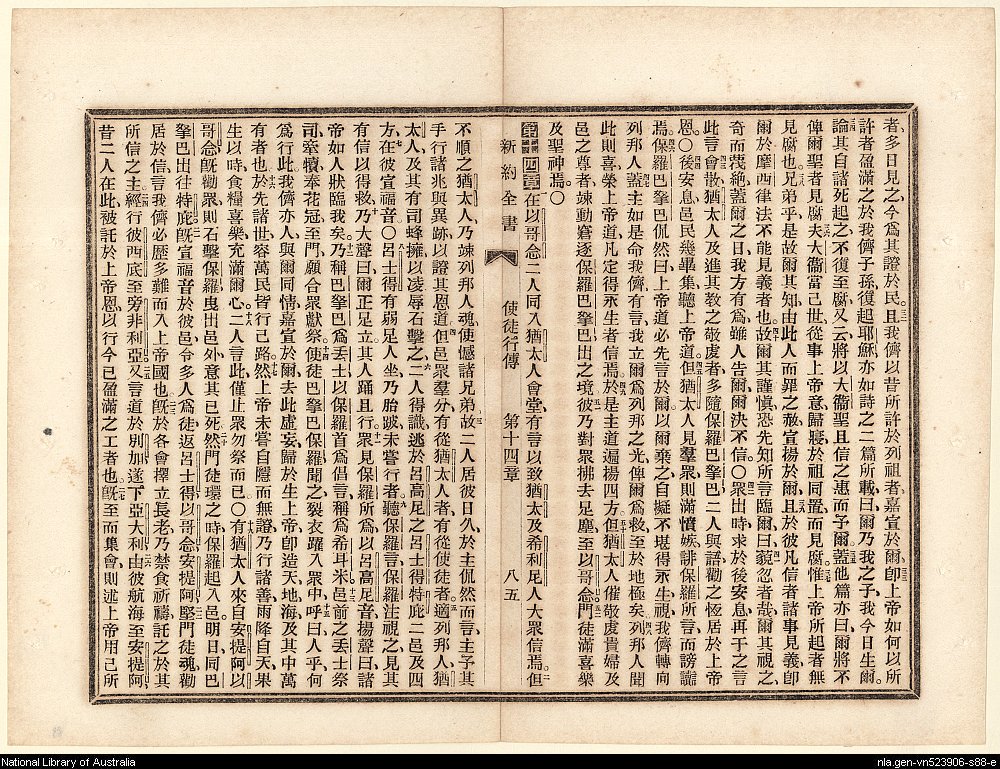 者多日見之、今爲其證於民、且我儕以昔所許於列祖者、嘉宣於爾、卽上帝如何以所
許者盈滿之於我儕子孫、復起耶穌、亦如詩之二篇所載、曰爾乃我之子、我今日生爾、
論其自諸死起之、不復至腐、又云將以大衞聖且信之惠而予爾、蓋他篇亦曰爾將不
俾爾聖者見腐、夫大衞當己世、從事上帝意、歸寢於祖、同置而見腐、惟上帝所起者、無
見腐也、兄弟乎、是故爾其知由此人而罪之赦宣揚於爾、且於彼凡信者諸事見義、卽
爾於摩西律法不能見義者也、故爾其謹愼、恐先知所言臨爾、曰藐忽者哉、爾其視之、
奇而蔑絶、蓋爾之日、我方有爲、雖人告爾、爾決不信、〇衆出時、求於後安息再于之言
此言、會散、猶太人及進其教之敬虔者、多隨保羅巴拏巴、二人與語、勸之恆居於上帝
恩、〇後安息、邑民幾畢集聽上帝道、但猶太人見羣衆、則滿憤嫉、誹保羅所言而謗讟
焉、保羅巴拏巴侃然曰、上帝道必先言於爾、以爾棄之、自擬不堪得永生、視我儕轉向
列邦人、蓋主如是命我儕、有言我立爾爲列邦之光、俾爾爲救至於地極矣、列邦人聞
此則喜、榮上帝道、凡定得永生者信焉、於是主道遍揚四方、但猶太人催敬虔貴婦及
邑之尊者、竦動窘逐保羅巴拏巴、出之境、彼乃對衆拂去足塵、至以哥念、門徒滿喜樂
及聖神焉、〇
第十四章 在以哥念、二人同入猶太人會堂、有言、以致猶太及希利尼人大衆信焉、但
新約全書 使徒行傳 第十四章 八五
不順之猶太人、乃竦列邦人魂、使憾諸兄弟、故二人居彼日久、於主侃然而言、主予其
手行諸兆與異跡、以證其恩道、但邑衆羣分、有從猶太人者、有從使徒者、適列邦人、猶
太人、及其有司蜂擁、以凌辱石擊之、二人得識、逃於呂高尼之呂士得特庇二邑、及四
方、在彼宣福音、〇呂士得有弱足人坐、乃胎跛未嘗行者、聽保羅言、保羅注視之、見其
有信以得救、乃大聲曰、爾正足立、其人踊且行、衆見保羅所爲、以呂高尼音揚聲曰、諸
帝如人狀臨我矣、乃稱巴拏巴爲丢士、以保羅首爲倡言、稱爲希耳米、邑前之丢士祭
司、牽犢奉花冠至門、願合衆獻祭、使徒巴拏巴保羅聞之、裂衣躍入衆中、呼曰、人乎、何
爲行此、我儕亦人、與爾同情、嘉宣於爾、去此虛妄、歸於生上帝、卽造天地海及其中萬
有者也、於先諸世、容萬民皆行己路、然上帝未嘗自隱而無證、乃行諸善、雨降自天、果
生以時、食糧喜樂充滿爾心、二人言此、僅止衆勿祭而已、〇有猶太人來自安提阿以
哥念、旣勸衆、則石擊保羅、曳出邑外、意其已死、然門徒環之時、保羅起入邑、明日同巴
拏巴出往特庇、旣宣福音於彼邑、令多人爲徒、返呂士得以哥念安提阿、堅門徒魂、勸
居於信、言我儕必歷多難、而入上帝國也、旣於各會擇立長老、乃禁食祈禱、託之於其
所信之主、經行彼西底至旁非利亞、又言道於別加、遂下亞大利、由彼航海至安提阿、
昔二人在此被託於上帝恩、以行今已盈滿之工者也、旣至而集會、則述上帝用己所
National Library of Australia
nla.gen-vn523906-s88-e